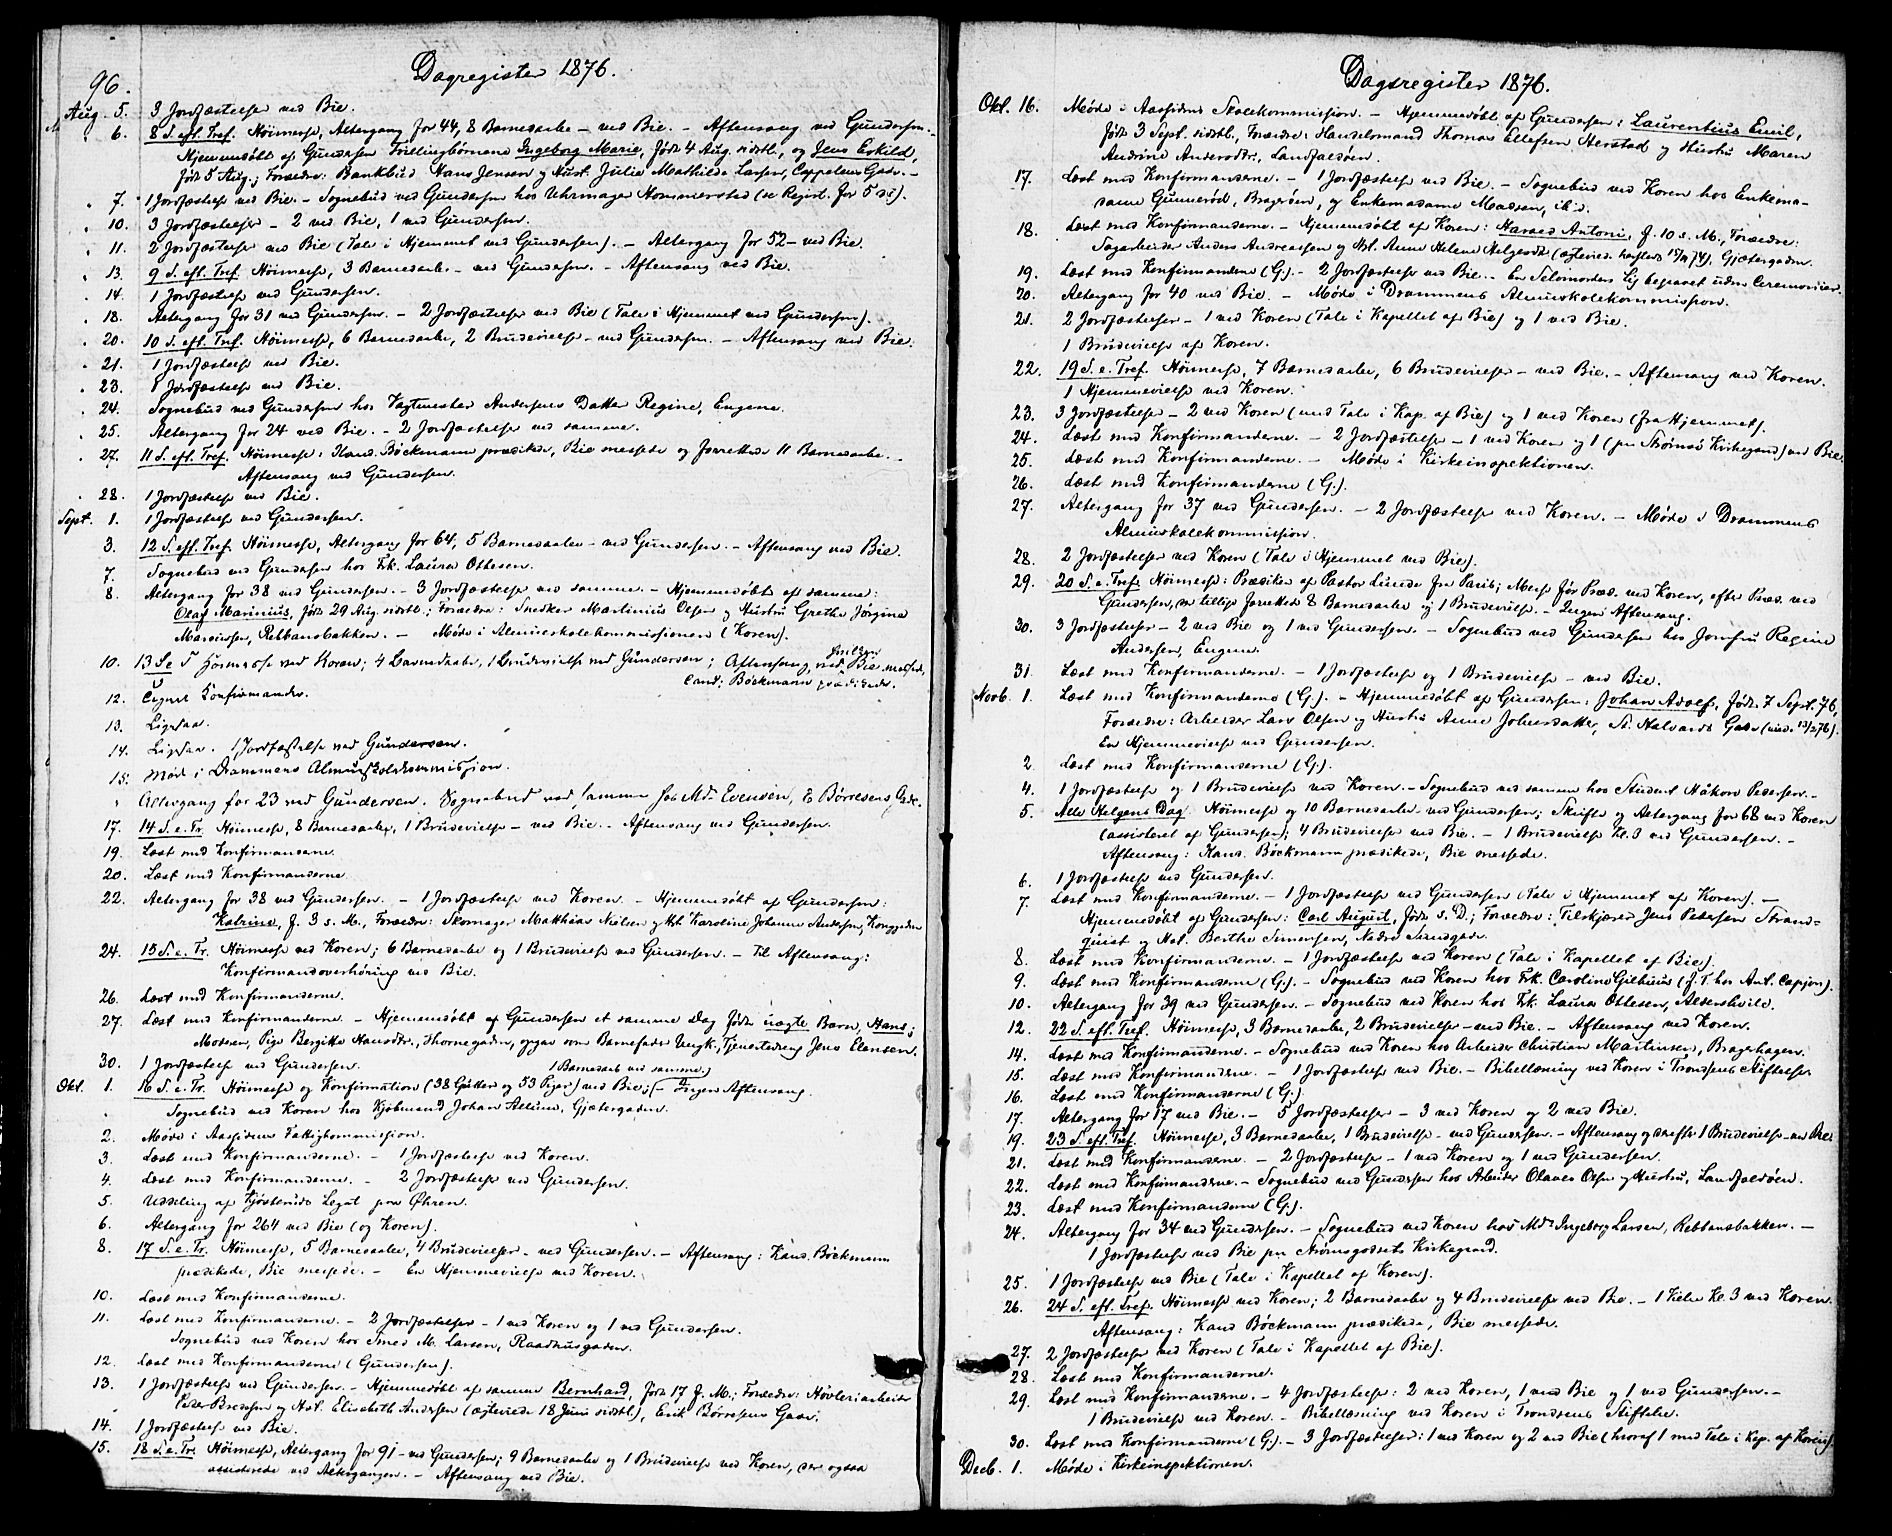 96.
Dagregister 1876.
Aug. 5. 3 Jordfæstelser ved Bie.
6. 8 S. eft. Tref. Høimesse, Altergang for 44, 8 Barnedaabe - ved Bie. - Aftensang ved Gundersen. -
Hjemmedøbt af Gundersen Tvillingbørnene Ingeborg Marie, født 4 Aug. sidstl., og Jens Eskild,
født 5 Aug.; Forældre: Bankbud Hans Jensen og Hust. Julie Mathilde Larsen, Cappelens Gade. -
7. 1 Jordfæstelse ved Bie. - Sognebud ved Gundersen hos Uhrmager Hommersted (se Regist. for 5 ds.).
10. 3 Jordfæstelser - 2 ved Bie, 1 ved Gundersen.
11. 2 Jordfæstelser ved Bie (Tale i Hjemmet ved Gundersen). - Altergang for 52 - ved Bie.
13. 9 S. eft. Tref. Høimesse, 3 Barnedaabe. - ved Gundersen. - Aftensang ved Bie.
14. 1 Jordfæstelse ved Gundersen.
18. Altergang for 31 ved Gundersen. - 2 Jordfæstelser ved Bie (Tale i Hjemmet ved Gundersen).
20. 10 S. eft. Tref. Høimesse, 6 Barnedaabe, 2 Brudevielser - ved Gundersen. - Aftensang ved Bie.
21. 1 Jordfæstelse ved Bie.
23. 1 Jordfæstelse ved Bie.
24. Sognebud ved Gundersen hos Vagtmester Andersens Datter Regine, Engene.
25. Altergang for 24 ved Bie. - 2 Jordfæstelser ved samme.
27. 11 S. eft. Tref. Høimesse: Kand. Böckmann prædikede, Bie messede og forrettede 11 Barnedaabe. -
Aftensang ved Gundersen.
28. 1 Jordfæstelse ved Bie.
Sept. 1. 1 Jordfæstelse ved Gundersen.
3. 12 S. eft. Tref. Høimesse, Altergang for 64, 5 Barnedaabe - ved Gundersen. - Aftensang ved Bie.
7. Sognebud ved Gundersen hos Frk. Laura Ottesen.
8. Altergang for 38 ved Gundersen. - 3 Jordfæstelser ved samme. - Hjemmedøbt af samme:
Olaf Marinius, født 29 Aug. sidstl.; Forældre: Snedker Martinius Olsen og Hustru Grethe Jörgine
Marcussen, Rebbansbakken. - Møde i Almueskolekommissionen (Koren).
10. 13 S e T Høimesse ved Koren; 4 Barnedaabe, 1 Brudevielse ved Gundersen; Aftensang, ved Bie messede,
Cand. Böckmann prædikede.
12. Tegnet Konfirmander.
13. Ligesaa.
14. Ligesaa. 1 Jordfæstelse ved Gundersen.
15. Møde i Drammens Almueskolekommission.
Altergang for 23 ved Gundersen. Sognebud ved samme hos Md. Evensen, E Børresens Gade.
17. 14 S. e. Tr. Høimesse, 8 Barnedaabe, 1 Brudevielse - ved Bie. - Aftensang ved Gundersen.
19. Læst med Konfirmanderne.
20. Læst med Konfirmanderne.
22. Altergang for 38 ved Gundersen. - 1 Jordfæstelse ved Koren. - Hjemmedøbt af Gundersen:
Katrine, f. 3 s. M., Forældre: Skomager Matthias Nielsen og Hst. Karoline Johanne Andersen, Konggaden
24. 15 S. e. Tr. Høimesse ved Koren; 6 Barnedaabe og 1 Brudevielse ved Gundersen. - Til Aftensang:
Konfirmandoverhøring ved Bie.
26. Læst med Konfirmanderne.
27. Læst med Konfirmanderne. - Hjemmedøbt af Gundersen et samme Dag født uægte Barn, Hans;
Moderen, Pige Bergitte Hansdtr., Thornegaden, opgav som Barnefader Ungk., Tjenestedreng Jens Elensen.
30. 1 Jordfæstelse ved Gundersen.
1 Barnedaab ved samme.
Okt. 1. 16 S. e. Tr. Høimesse og Konfirmation (38 Gutter og 53 Piger) ved Bie; - Ingen Aftensang.
Sognebud ved Koren hos Kjøbmand Johan Allum, Gjætergaden.
2. Møde i Aassidens Fattigkommission.
3. Læst med Konfirmanderne. - 1 Jordfæstelse ved Koren.
4. Læst med Konfirmanderne. - 2 Jordfæstelser ved Gundersen.
5. Uddeling af Kjøsteruds Legat paa Øhren.
6. Altergang for 264 ved Bie (og Koren).
8. 17 S. e. Tr. Høimesse, 5 Barnedaabe, 4 Brudevielser - ved Gundersen. - Aftensang: Kand. Böckmann
prædikede, Bie messede. - En Hjemmevielse ved Koren.
10. Læst med Konfirmanderne.
11. Læst med Konfirmanderne. - 2 Jordfæstelser - 1 ved Koren og 1 ved Gundersen.
Sognebud ved Koren hos Smed M. Larsen, Raadhusgaden.
12. Læst med Konfirmanderne (Gundersen).
13. 1 Jordfæstelse ved Gundersen. - Hjemmedøbt af samme Bernhard, født 17 f. M.; Forældre: Høvleriarbeider
Peder Bredesen og Hst. Elisabeth Andersen (ægteviede 18 Juni sidstl.), Erik Børresens Gade.
14. 1 Jordfæstelse ved Bie.
15. 18 S. e. Tr. Høimesse, Altergang for 91 - ved Gundersen; 9 Barnedaabe og 1 Brudevielse ved Koren, der ogsaa
assisterede ved Altergangen. - Aftensang ved Bie.
Dagsregister 1876.
Okt. 16. Møde i Aassidens Skolekommission. - Hjemmedøbt af Gundersen: Laurentius Emil,
født 3 Sept. sidstl., Forældre: Handelsmand Thomas Ellefsen Herstad og Hustru Maren
Andrine Andersdtr., Landfaldøen.
17. Læst med Konfirmanderne. - 1 Jordfæstelse ved Bie. - Sognebud ved Koren hos Enkema-
dame Gunnerød, Bragerøen, og Enkemadame Madsen, ibid.
18. Læst med Konfirmanderne. - Hjemmedøbt af Koren: Harald Antoni, f. 10 s. M., Forældre:
Sagarbeider Anders Andreassen og Hst. Anne Helene Helgesdtr. (ægteviede herstedes 74), Gjætergaden.
19. Læst med Konfirmanderne (G.). - 2 Jordfæstelser ved Bie. - En Selvmorders Lig begravet uden Ceremonier.
20. Altergang for 40 ved Bie. - Møde i Drammens Almueskolekommission.
21. 2 Jordfæstelser - 1 ved Koren (Tale i Kapellet af Bie) og 1 ved Bie.
1 Brudevielse af Koren.
22. 19 S. e. Tref. Høimesse, 7 Barnedaabe, 6 Brudevielser - ved Bie. - Aftensang ved Koren.
1 Hjemmevielse ved Koren.
23. 3 Jordfæstelser - 2 ved Koren (med Tale i Kap. af Bie) og 1 ved Koren (fra Hjemmet).
24. Læst med Konfirmanderne. - 2 Jordfæstelser - 1 ved Koren og 1 (paa Strømsø Kirkegaard) ved Bie.
25. Læst med Konfirmanderne. - Møde i Kirkeinspektionen.
26. Læst med Konfirmanderne (G.).
27. Altergang for 37 ved Gundersen. - 2 Jordfæstelser ved Koren. - Møde i Drammens
Almueskolekommission.
28. 2 Jordfæstelser ved Koren (Tale i Hjemmet ved Bie).
29. 20 S. e. Tref. Høimesse: Prædiken af Pastor Lunde fra Paris; Messe før Præd. ved Koren, efter Præd. ved
Gundersen, der tillige forrettede 8 Barnedaabe og 1 Brudevielse. - Ingen Aftensang.
30. 3 Jordfæstelser - 2 ved Bie og 1 ved Gundersen. - Sognebud ved Gundersen hos Jomfru Regine
Andersen, Engene.
31. Læst med Konfirmanderne. - 1 Jordfæstelse og 1 Brudevielse - ved Bie.
Novb. 1. Læst med Konfirmanderne (G.). - Hjemmedøbt af Gundersen: Johan Adolf, født 7 Sept. 76,
Forældre: Arbeider Lars Olsen og Hustru Anne Johnsdatter, St. Halvards Gade (viede 13/2 76).
En Hjemmevielse ved Gundersen.
2. Læst med Konfirmanderne (G.).
4. 1 Jordfæstelse og 1 Brudevielse ved Koren. - Sognebud ved samme hos Student Håkon Pedersen. -
5. Alle Helgens Dag. Høimesse og 10 Barnedaabe - ved Gundersen; Skrifte og Altergang for 68 ved Koren
(assisteret af Gundersen); 4 Brudevielser ved Bie. - 1 Brudevielse Kl. 3 ved Gundersen. -
Aftensang: Kand. Böckmann prædikede, Bie messede.
6. 1 Jordfæstelse ved Gundersen.
7. Læst med Konfirmanderne. - 1 Jordfæstelse ved Gundersen (Tale i Hjemmet af Koren). -
Hjemmedøbt af Gundersen: Carl August, født s. D.; Forældre: Tilskjærer Jens Pedersen Strand-
quist og Hst. Berthe Simensen, Nedre Strandgade.
8. Læst med Konfirmanderne. - 1 Jordfæstelse ved Koren (Tale i Kapellet af Bie).
9. Læst med Konfirmanderne (G.). - Sognebud ved Koren hos Frk. Caroline Gilhuus (f. T. hos Ant. Capjon).
10. Altergang for 39 ved Gundersen. - Sognebud ved Koren hos Frk. Laura Ottesen, Aldershvile.
12. 22 S. eft. Tref. Høimesse, 3 Barnedaabe, 2 Brudevielser - ved Bie. - Aftensang ved Koren.
14. Læst med Konfirmanderne. - Sognebud ved Koren hos Arbeider Christian Martinsen, Bragerhagen.
15. Læst med Konfirmanderne. - 1 Jordfæstelse ved Bie. - Bibellæsning ved Koren i Trondsens Stiftelse.
16. Læst med Konfirmanderne (G.)
17. Altergang for 17 ved Bie. - 5 Jordfæstelser - 3 ved Koren og 2 ved Bie.
19. 23 S. eft. Tref. Høimesse, 3 Barnedaabe, 1 Brudevielse - ved Gundersen. - Aftensang og derefter 1 Brudevielse - ved Bie.
21. Læst med Konfirmanderne. - 2 Jordfæstelser - 1 ved Koren og 1 ved Gundersen.
22. Læst med Konfirmanderne. - Sognebud ved Gundersen hos Arbeider Olaves Olsen og Hustru, Landfaldøen.
23. Læst med Konfirmanderne (G.).
24. Altergang for 34 ved Gundersen. - Sognebud ved Koren hos Md. Ingeborg Larsen, Rebbansbakken. -
1 Jordfæstelse ved Bie paa Strømsgodsets Kirkegaard.
25. 1 Jordfæstelse ved Bie (Tale i Kapellet af Koren).
26. 24 S. eft. Tref. Høimesse ved Koren; 2 Barnedaabe og 4 Brudevielser ved Bie. - 1 Vielse Kl. 3 ved Koren.
Aftensang: Kand Böckmann prædikede, Bie messede.
27. 2 Jordfæstelser ved Koren (Tale i Kapellet af Bie).
28. Læst med Konfirmanderne.
29. Læst med Konfirmanderne. - 4 Jordfæstelser: 2 ved Koren, 1 ved Bie og 1 ved Gundersen. -
1 Brudevielse ved Koren. - Bibellæsning ved Koren i Trondsens Stiftelse.
30. Læst med Konfirmanderne (G.) - 3 Jordfæstelser: 1 ved Koren og 2 ved Bie (hvoraf 1 med Tale i Kap. af Koren).
Decb. 1. Møde i Kirkeinspektionen.